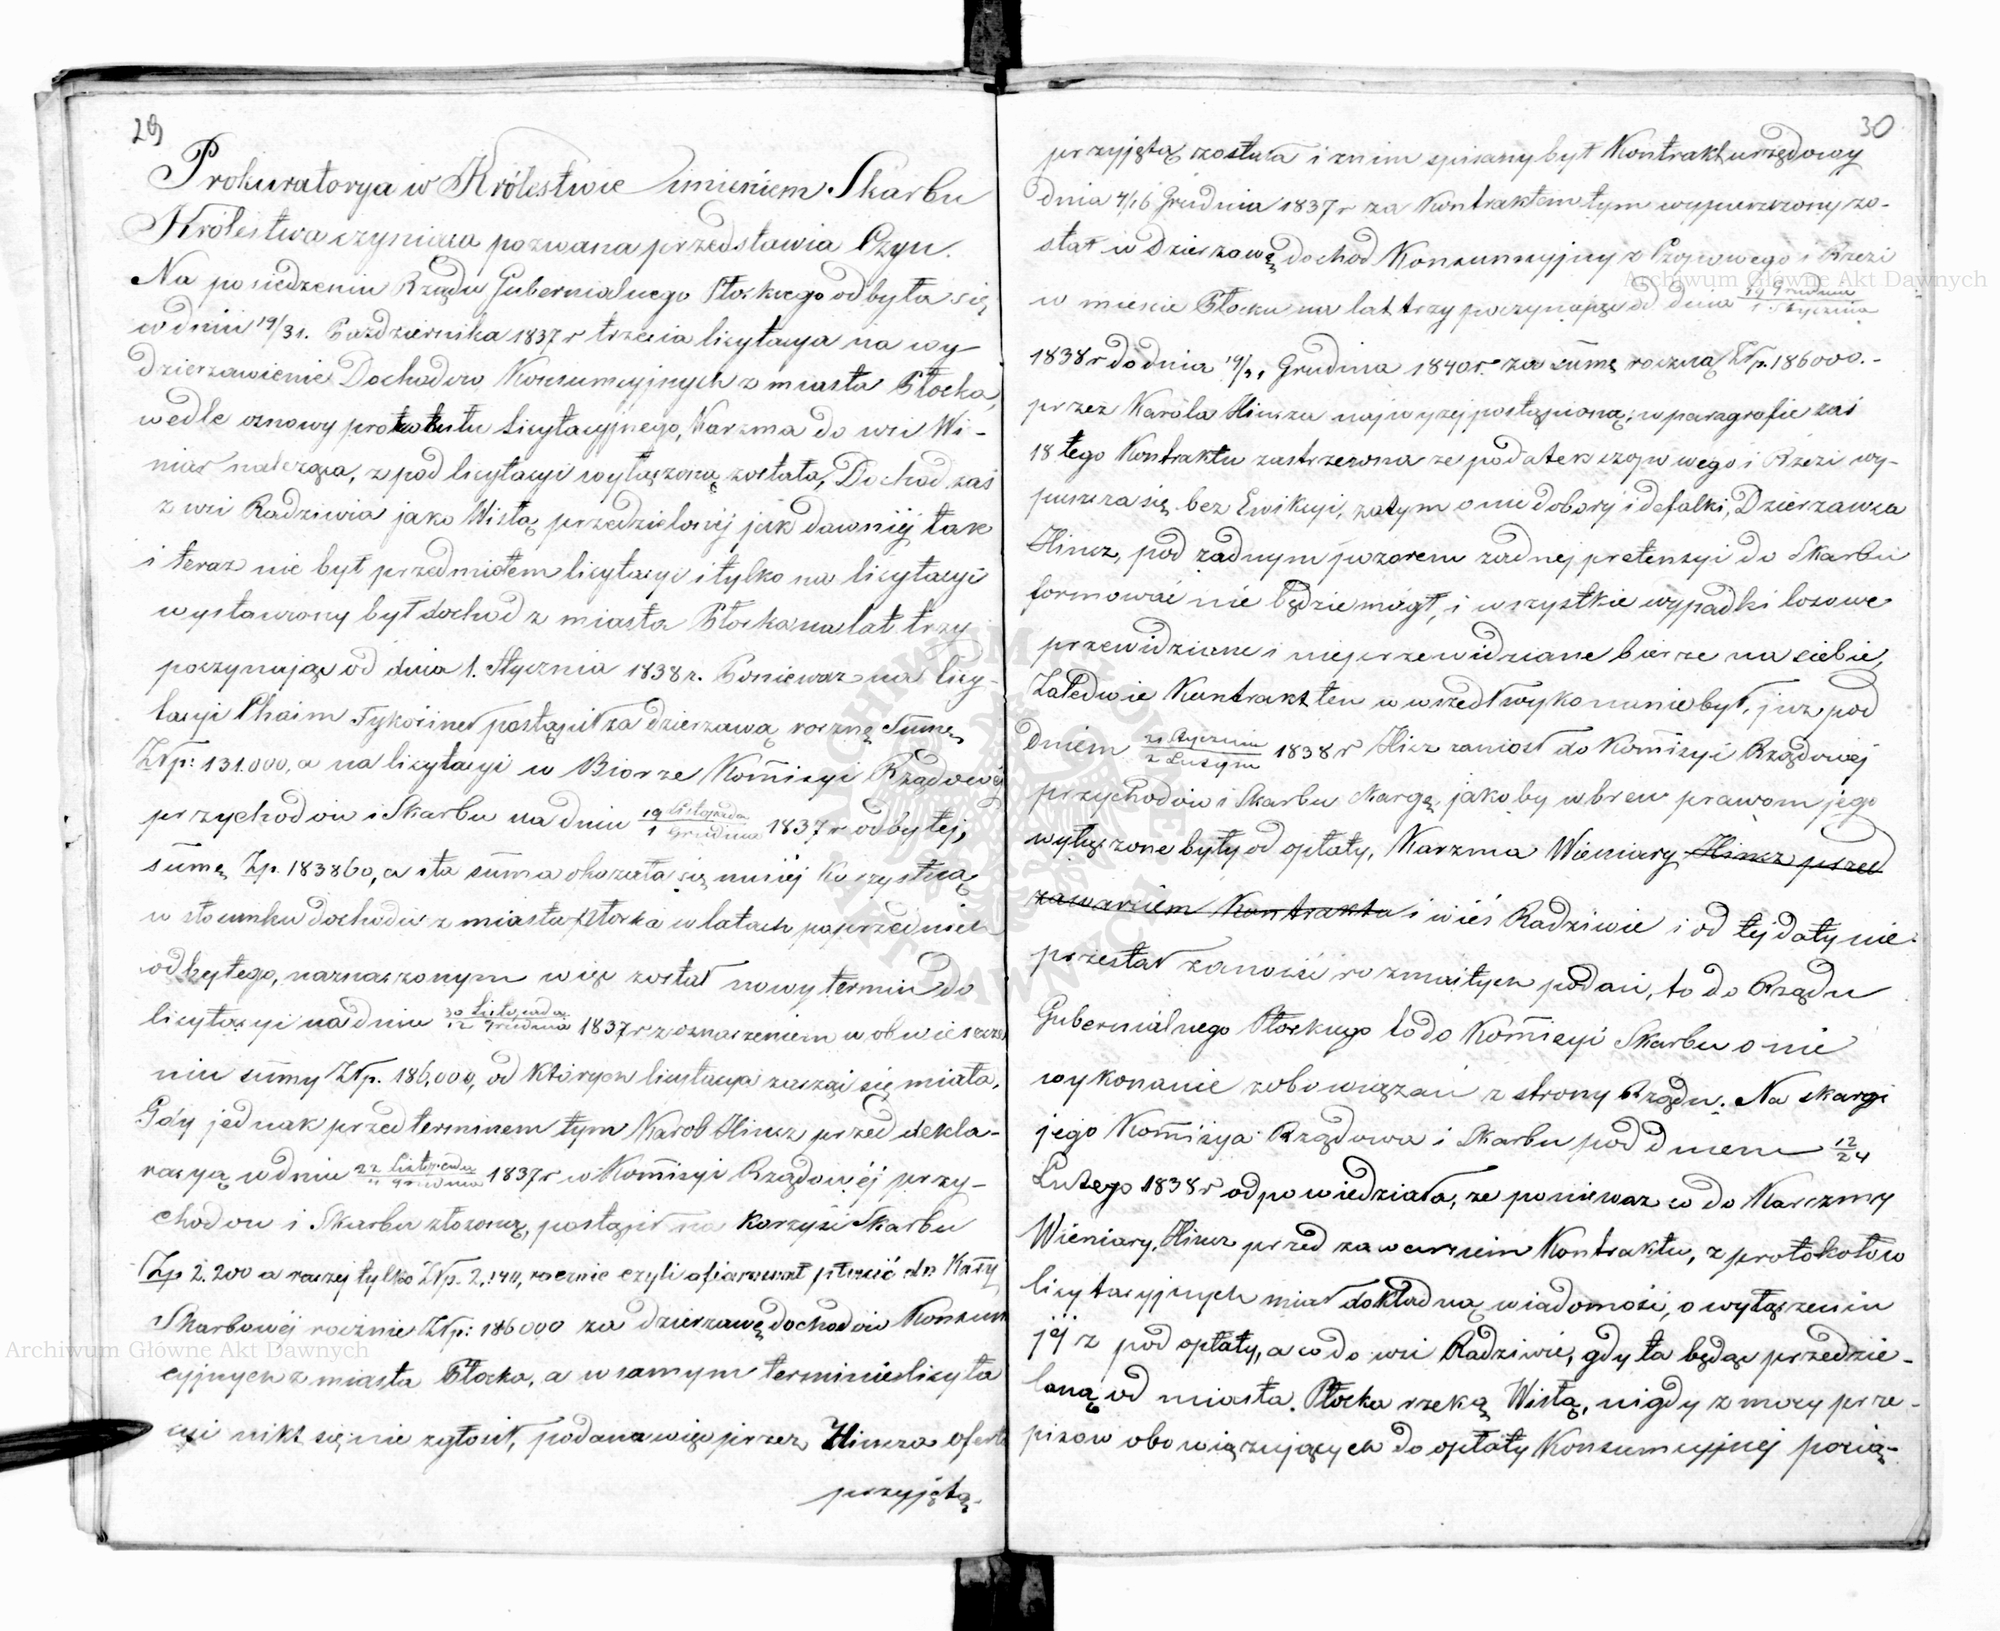 29
Prokuratorya w Królestwie imieniem Skarbu
Królestwa czyniąca pozwana przedstawia Czyn.
Na posiedzeniu Rządu Gubernialnego Płockiego odbyła się
w dniu 19/31. Października 1837 r trzecia licytacya na wy-
dzierzawienie Dochodów Konsumcyjnych z miasta Płocka,
wedle osnowy protokutu Licytacyjnego, Karzma do wsi Wi-
niar należąca, z pod licytacyi wyłączoną została, Dochod zaś
z wsi Radziwia jako Wisłą przedzielonéj jak dawniéj tak
i teraz nie był przedmiotem licytacyi i tylko na licytacyi
wystawiony był dochod z miasta Płocka na lat trzy
poczynając od dnia 1. Stycznia 1838 r. Ponieważ na licy-
tacyi Chaim Tykociner postąpił za dzierzawę roczną Summę
Złp: 131.000, a na licytacyi w Biorze Kommisyi Rządowéj
przychodów i Skarbu na dniu 19 Listopada / 1 Grudnia 1837 r odbytej,
summę Zp. 183860, a sta summa okazała się mniéj korzystną
w stosunku dochodu z miasta Płocka w latach poprzednich
odbytego, naznaczonym więc został nowy termin do
licytacyi na dniu 30 Listopada / 12 Grudnia 1837 r z oznaczeniem w obwieszcze
niu summy Złp. 186,000, od których licytacya zacząć się miała,
Gdy jednak przed terminem tym Karol Hincz przed dekla-
racyą w dniu 22 Listopada / 4 Grudnia 1837 r w Kommisyi Rządowéj przy-
chodów i Skarbu złożoną, postąpił na korzyść Skarbu
Zp 2.200 a raczej tylko Złp. 2,140, rocznie czyli ofiarował płacić do Kassy
Skarbowéj rocznie Złp: 186000 za dzierzawę dochodów Konsum
cyjnych z miasta Płocka, a w samym terminie licyta
cyi nikt się nie zgłosił, podana więc przez Hincza oferta
przyjętą.
30
przyjętą została i z nim spisany był Kontrakt urzędowy
dnia 4/16 Grudnia 1837 r za Kontraktem tym wypuszczony zo-
stał w Dzierzawę dochod Konsumcyjny z Czopowego i Rzezi
w mieście Płocku na lat trzy poczynając od dnia 19 Grudnia / 1 Stycznia
1838 r do dnia 19/31 Grudnia 1840 r. za summę roczną Złp. 186000.-
przez Karola Hincza najwyzej postąpioną, w paragrafie zaś
18 tego Kontraktu zastrzezona ze podatek czopowego i Rzezi wy-
puszcza się bez Ewikcyi, zatym o niedobory i defalki, Dzierzawca
Hincz, pod zadnym pozorem zadnej pretensyi do Skarbu
formować nie będzie mógł, i wszystkie wypadki losowe
przewidziane i nieprzewidziane bierze na siebie,
Zaledwie Kontrakt ten w wszedł wykonanie był, juz pod
Dniem 21 Stycznia / 2 Lutego 1838 r Hicz zaniosł do Kommisyi Rządowéj
przychodów i Skarbu skargę, jakoby wbrew prawom jego
wyłączone były od opłaty, Karzma Wieniary Hincz przed
zawarciem Kontraktu i wieś Radziwie i od tej daty nie
przestał zanosić rozmaitych podań, to do Rządu
Gubernialnego Płockiego to do Kommisyi Skarbu o nie
wykonanie zobowiązań z strony Rządu. Na skargi
jego Kommisya Rządowa i Skarbu pod dniem 12/24
Lutego 1838 r odpowiedziała, ze ponieważ co do Karczmy
Wieniary, Hincz przed zawarciem Kontraktu, z protokołów
licytacyjnych miał dokładną wiadomość, o wyłączeniu
jéj z pod opłaty, a co do wsi Radziwie, gdy ta będąc przedzie-
loną od miasta Płocka rzeką Wisłą, nigdy z mocy prze-
pisów obowiązujących do opłaty Konsumcyjnej pocią-
Archiwum Główne Akt Dawnych
Archiwum Główne Akt Dawnych